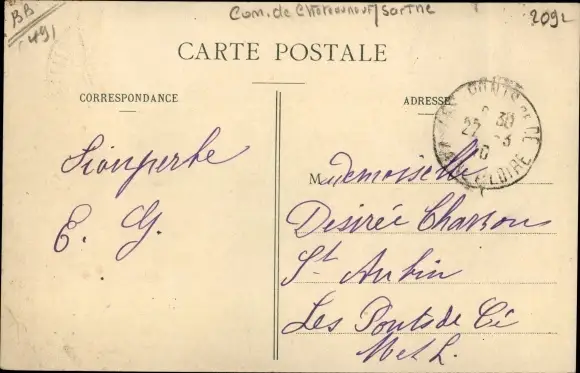 BB
(49)
Com. de Chateauneuf/Sarthe
2092
CARTE POSTALE
CORRESPONDANCE
ADRESSE
LES PONTS DE CÉ
8 30
22 3
10
ET LOIRE
E. G.
Mademoiselle
Désirée Chasson
St Aubin
Les Ponts de Cé
M et L.